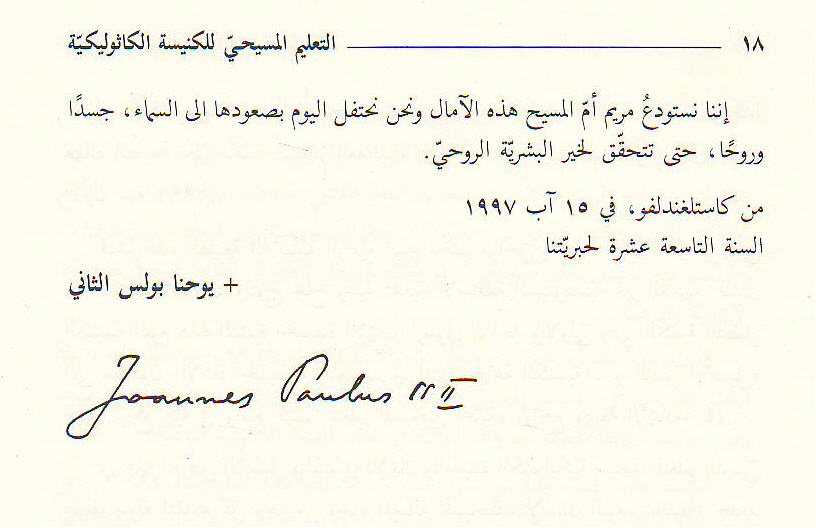 ١٨ التعليم المسيحيّ للكنيسة الكاثوليكيّة
إننا نستودعُ مريم أمّ المسيح هذه الآمال ونحن نحتفل اليوم بصعودها الى السماء، جسدًا
وروحًا، حتى تتحقّق لخير البشريّة الروحيّ.
من كاستلغندلفو، في ١٥ آب ١٩٩٧
السنة التاسعة عشرة لحبريّتنا
+ يوحنا بولس الثاني
Joannes Paulus II